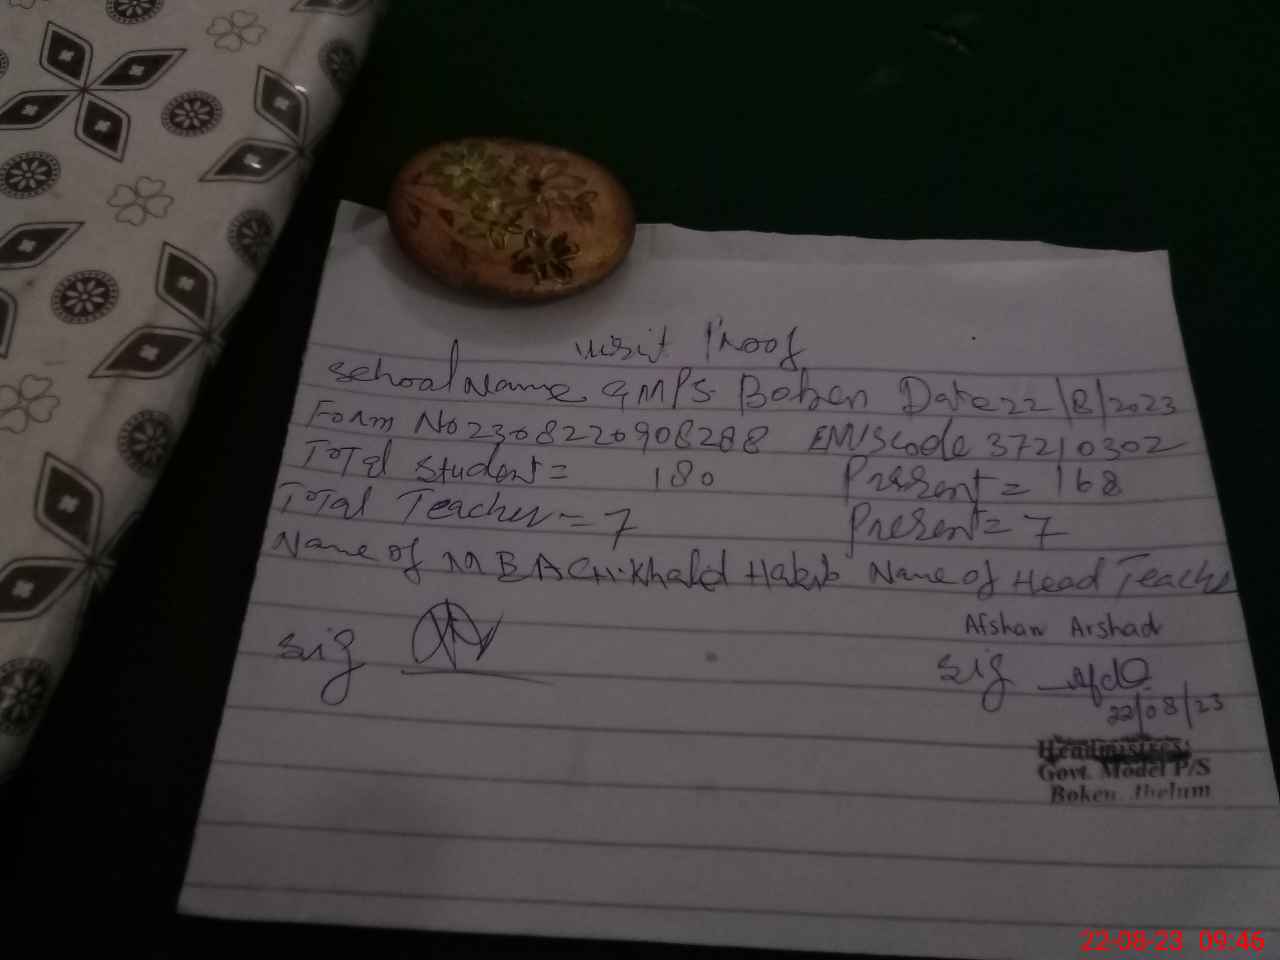 Visit Proof
School Name GMPS Boken Date 22/8/2023
Form No 230822090828 8 EMIS code 37210302
Total Student = 180 Present = 168
Total Teacher = 7 Present = 7
Name of MEA CH. Khald Habib Name of Head Teacher
Afshan Arshad
Sig
Sig
22/08/23
Headmistress
Govt. Model P/S
Boken Jhelum
22-08-23 09:46